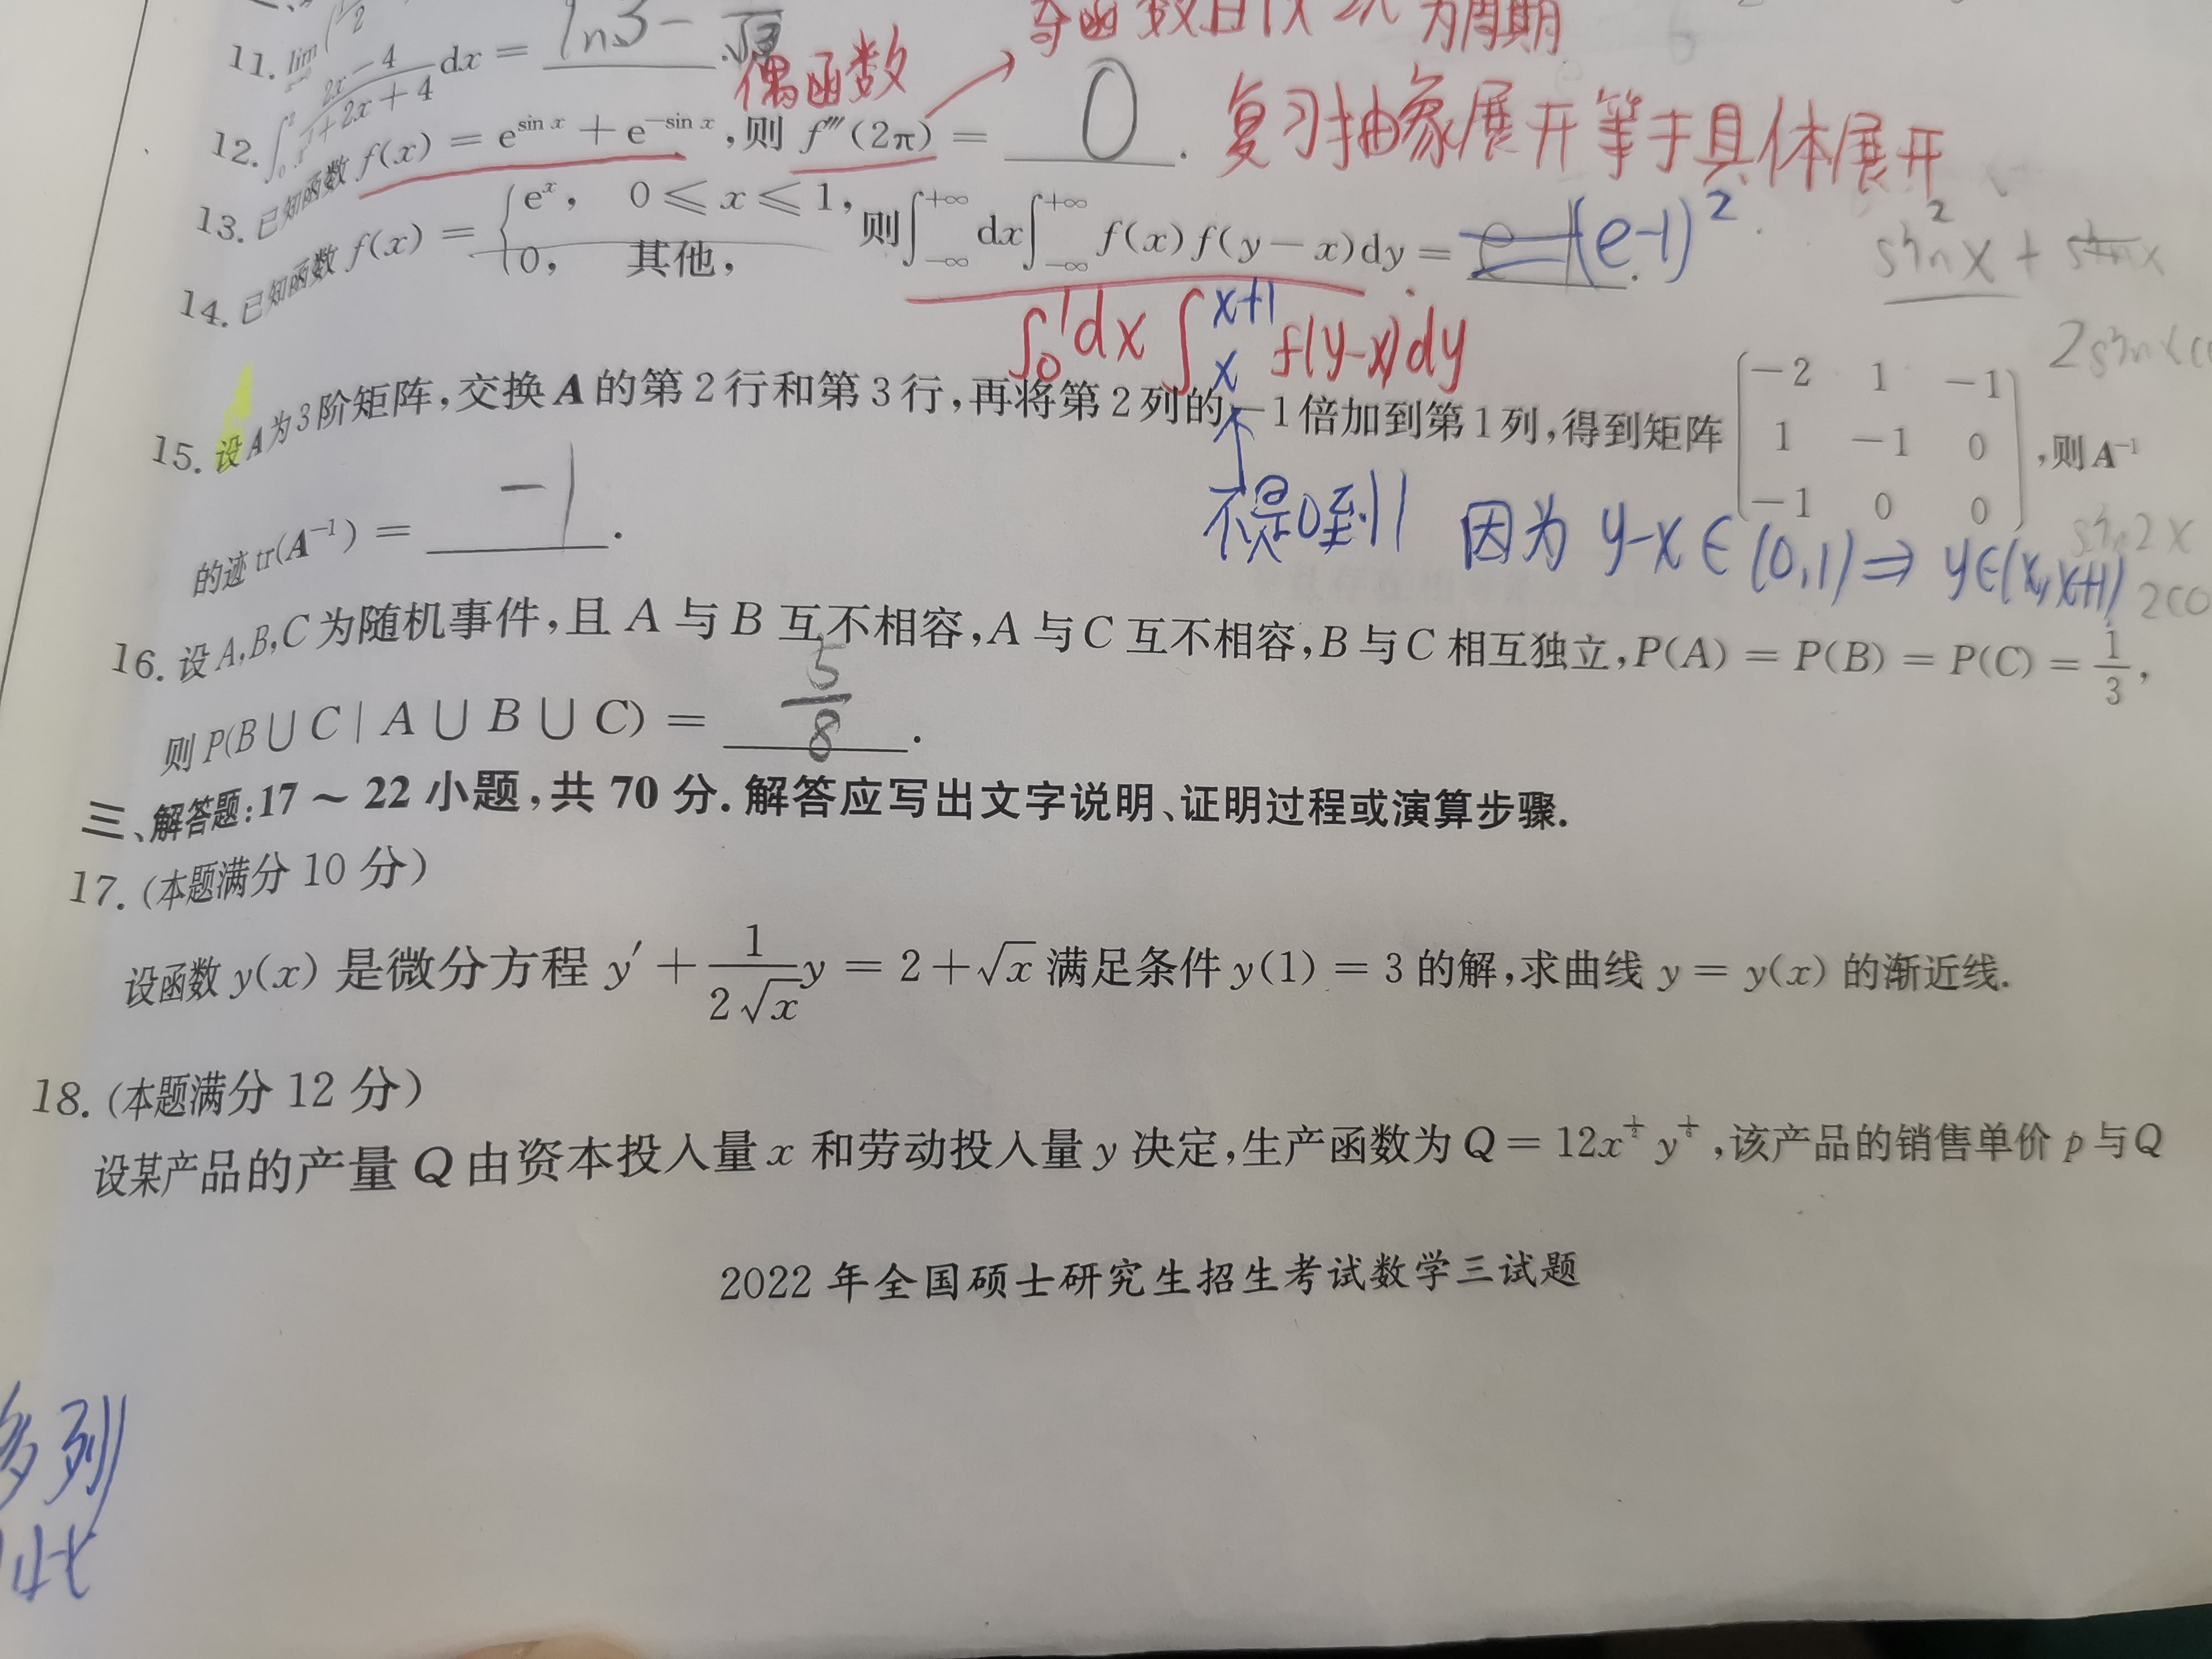 奇函数且以2π为周期
11. lim
12. ∫₀² (2x-4)/(x²+2x+4) dx = ln3 - π/√3 .
偶函数
13. 已知函数 f(x) = e^{sin x} + e^{-sin x}, 则 f‴(2π) = 0 .
复习抽象展开等于具体展开
14. 已知函数 f(x) = { e^x, 0 ≤ x ≤ 1,
0, 其他,
则∫_{-∞}^{+∞} dx ∫_{-∞}^{+∞} f(x)f(y-x)dy = (e-1)² .
∫₀¹ dx ∫_x^{x+1} f(y-x)dy
sin²x + sin x
15. 设 A 为 3 阶矩阵,交换 A 的第 2 行和第 3 行,再将第 2 列的 -1 倍加到第 1 列,得到矩阵
-2 1 -1
1 -1 0
-1 0 0
,则 A⁻¹
不是0到1 因为 y-x∈(0,1)⇒ y∈(x,x+1)
sin2x
的迹 tr(A⁻¹) = -1 .
16. 设 A,B,C 为随机事件,且 A 与 B 互不相容,A 与 C 互不相容,B 与 C 相互独立,P(A) = P(B) = P(C) = 1/3,
则 P(B∪C | A∪B∪C) = 5/8 .
三、解答题:17~22 小题,共 70 分. 解答应写出文字说明、证明过程或演算步骤.
17. (本题满分 10 分)
设函数 y(x) 是微分方程 y′ + 1/(2√x) y = 2+√x 满足条件 y(1) = 3 的解,求曲线 y = y(x) 的渐近线.
18. (本题满分 12 分)
设某产品的产量 Q 由资本投入量 x 和劳动投入量 y 决定,生产函数为 Q = 12x^{1/2} y^{1/6},该产品的销售单价 p 与 Q
2022 年全国硕士研究生招生考试数学三试题
列